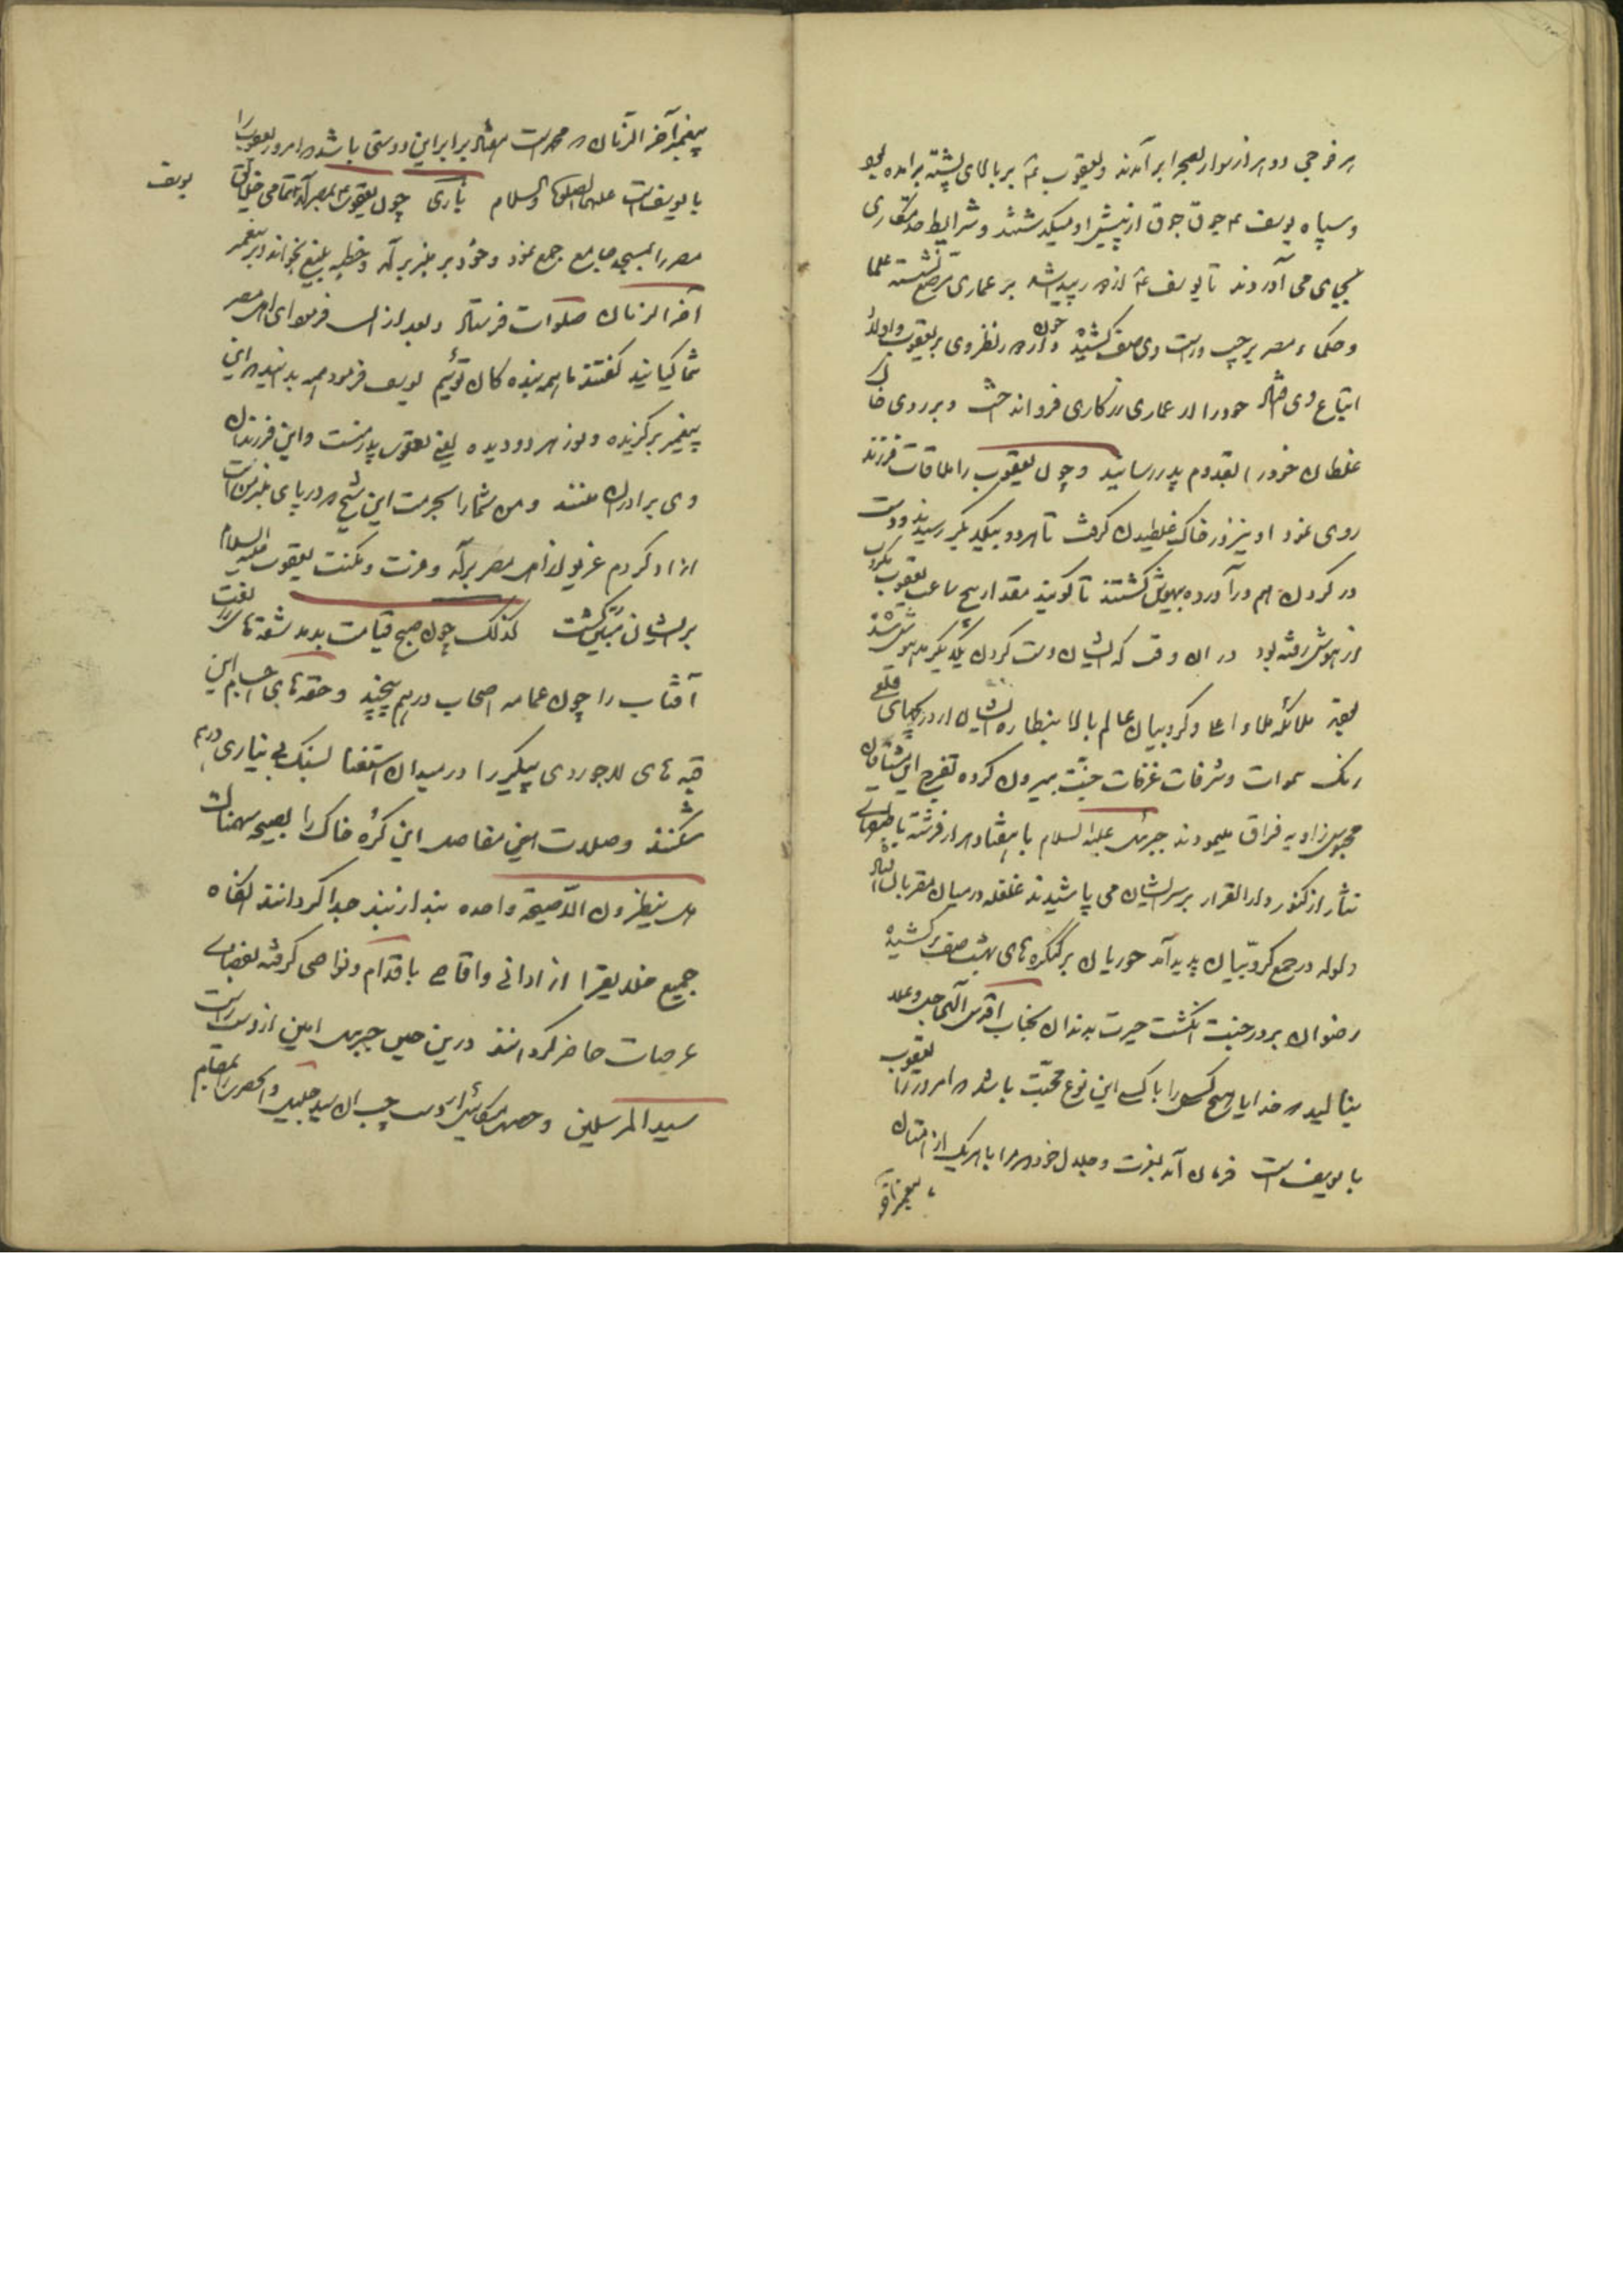 هر فوجی دو هزار سوار بصحرا برآمدند و یعقوب ع‍ بر بالای پشته برآمده
و سپاه یوسف ع‍ جوق جوق از پیش او میگذشتند و شرایط خدمتکاری
بجای می آوردند تا یوسف ع‍ از در رسید بر عماری مرصع نشسته علما
و حکماء مصر بر چپ و راست وی صف کشیده چون از دور نظر وی بر یعقوب و اولاد
اتباع وی افتاد خود را از عماری زرکاری فرو انداخت و بر روی خاک
غلطان خود را بقدوم پدر رسانید و چون یعقوب را ملاقات فرزند
روی نمود او نیز در خاک غلطیدن گرفت تا هر دو بیکدیگر رسیدند و دست
در گردن هم درآورده بیهوش گشتند تا گویند مقدار پنج ساعت یعقوب
از هوش رفته بود در آن وقت که ایشان دست گردن یکدیگر مدهوش شدند
ملائکه ملاء اعلی و کروبیان عالم بالا بنظاره ایشان از دریچهای قلعه
رنگ سموات و شرفات غرفات جنت بیرون کرده تفرج این مشتاقان
محبوس زاویه فراق مینمودند جبرئیل علیه السلام با هفتاد هزار فرشته با طبقهای
نثار از کنوز دار القرار بر سر ایشان می پاشیدند غلغله در میان مقربان افتاد
ولوله در جمع کروبیان پدید آمد حوریان بر کنگره های بهشت صف کشیده
رضوان بر در جنت انگشت حیرت بدندان بجناب اقدس الهی جل و علا
بنالید که خدایا هیچ کس را با کسی این نوع محبت باشد که امروز یعقوب را
با یوسف است فرمان آمد بعزت و جلال خودم که مرا با هر یک از امتان
پیغمبر آخر الزمان که محمد است هفتاد برابر این دوستی باشد که امروز یعقوب را
با یوسف است علیهما الصلوة والسلام باری چون یعقوب ع‍ بمصر آمد تمامی خلایق
یوسف
مصر را بمسجد جامع جمع نمود و خود بر منبر برآمد و خطبه بلیغ بخواند و بر پیغمبر
آخر الزمان صلوات فرستاد و بعد از آن فرمود ای اهل مصر
شما کیانید گفتند ما همه بنده کان توئیم یوسف فرمود همه بدانید که این
پیغمبر برگزیده و نور هر دو دیده یعنی یعقوب پدر منست و این فرزندان
وی برادران منند و من شما را بحرمت این شیخ که در پای منبر من است
آزاد کردم غریو از اهل مصر برآمد و عزت و مکنت یعقوب علیه السلام
بر ایشان مبین گشت کذلک چون صبح قیامت بدمد شقه های زربفت
آفتاب را چون عمامه اصحاب درهم پیچند و حقه های اجسام این
قبه های لاجوردی پیکر را در میدان استغنا بسنگ بی نیازی درهم
شکنند وصلات این مفاصل این کره خاک را بصیحه سهمناک
هل ینظرون الا صیحة واحده بند از بند جدا گردانند آنگاه
جمیع خلایق را از ادانی و اقاصی باقدام و نواصی گرفته بفضای
عرصات حاضر گردانند درین حین جبرئیل امین از دست راست
سید المرسلین و حضرت میکائیل از دست چپ آن سید جلیل